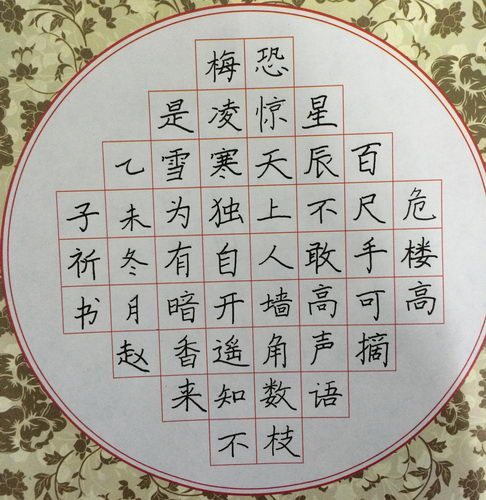 危楼高
百尺手可摘
星辰不敢高声语
恐惊天上人墙角数枝
梅凌寒独自开遥知不
是雪为有暗香来
乙未冬月赵
子祈书